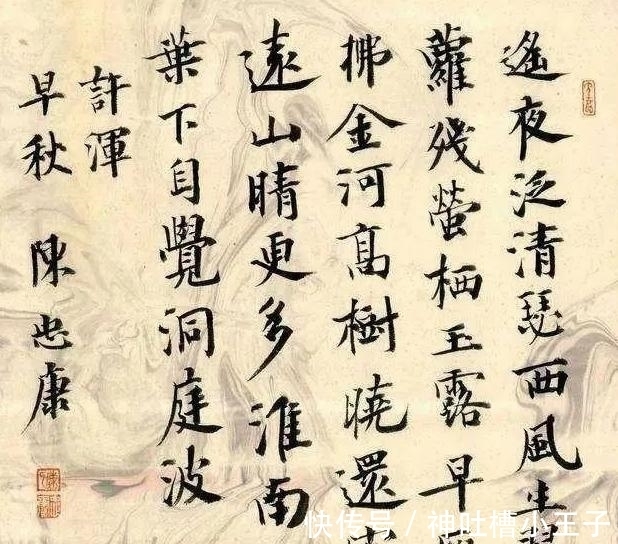 遙夜泛清瑟西風生
蘿殘螢栖玉露早
拂金河高樹曉還
遠山晴更多淮南
葉下自覺洞庭波
許渾
早秋 陳忠康
快传号/神吐槽小王子